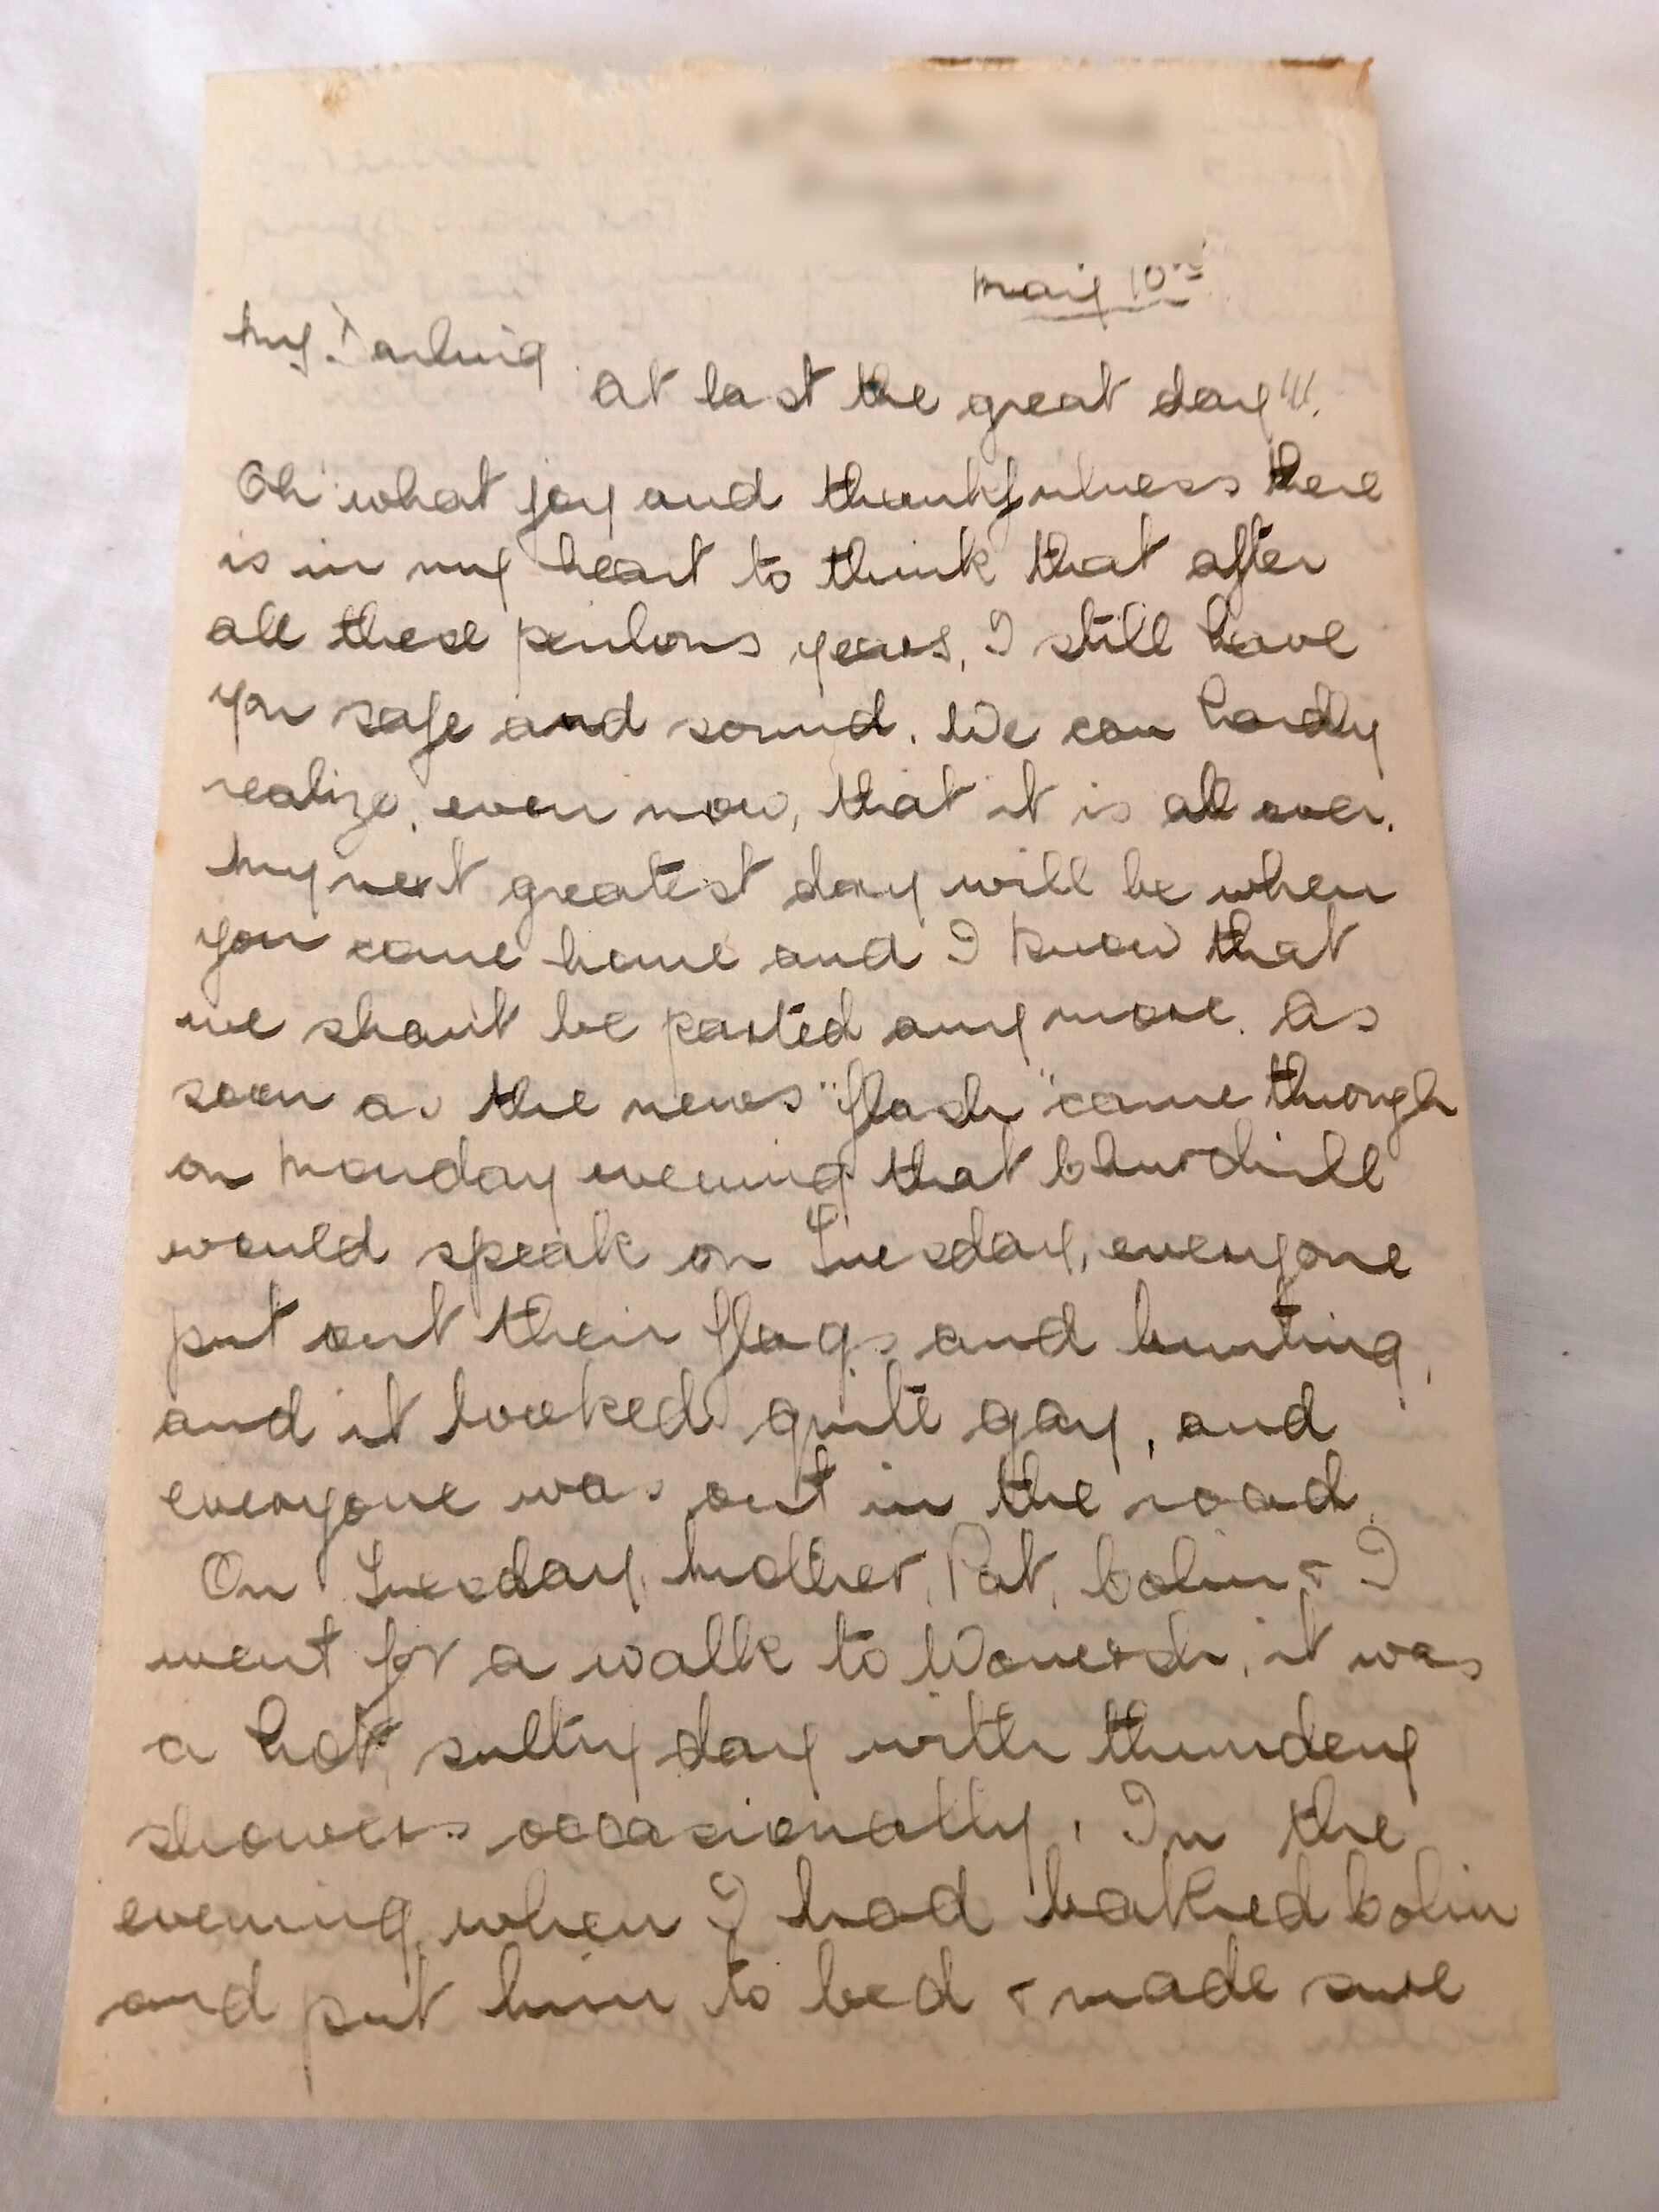 May 10th
My Darling
At last the great day!!!
Oh what joy and thankfulness there
is in my heart to think that after
all these perilous years, I still have
you safe and sound. We can hardly
realize, even now, that it is all over.
My next greatest day will be when
you come home and I know that
we shan't be parted any more. As
soon as the news "flash" came through
on Monday evening that Churchill
would speak on Tuesday, everyone
put out their flags and bunting,
and it looked quite gay, and
everyone was out in the road.
On Tuesday, Mother, Pat, Colin & I
went for a walk to Wonersh, it was
a hot, sultry day with thundery
showers occasionally. In the
evening, when I had bathed Colin
and put him to bed & made sure